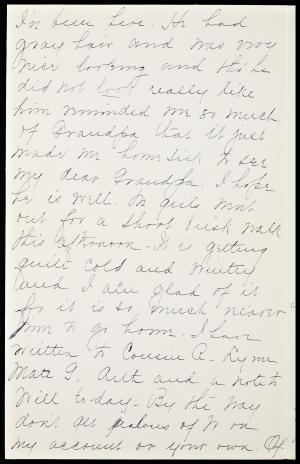 I've been here. He had
gray hair and was very
nice looking and tho' he
did not look really like
him reminded me so much
of Grandpa that it just
made me home sick to see
my dear Grandpa. I hope
he is well. We girls went
out for a short brisk walk
this afternoon - It is getting
quite cold and wintry
and I am glad of it
for it is so much nearer
time to go home. I have
written to Cousin R- Lynn
G. Arth and a note to
Will to-day - By the way
don't get jealous of W on
my account or your own. Of